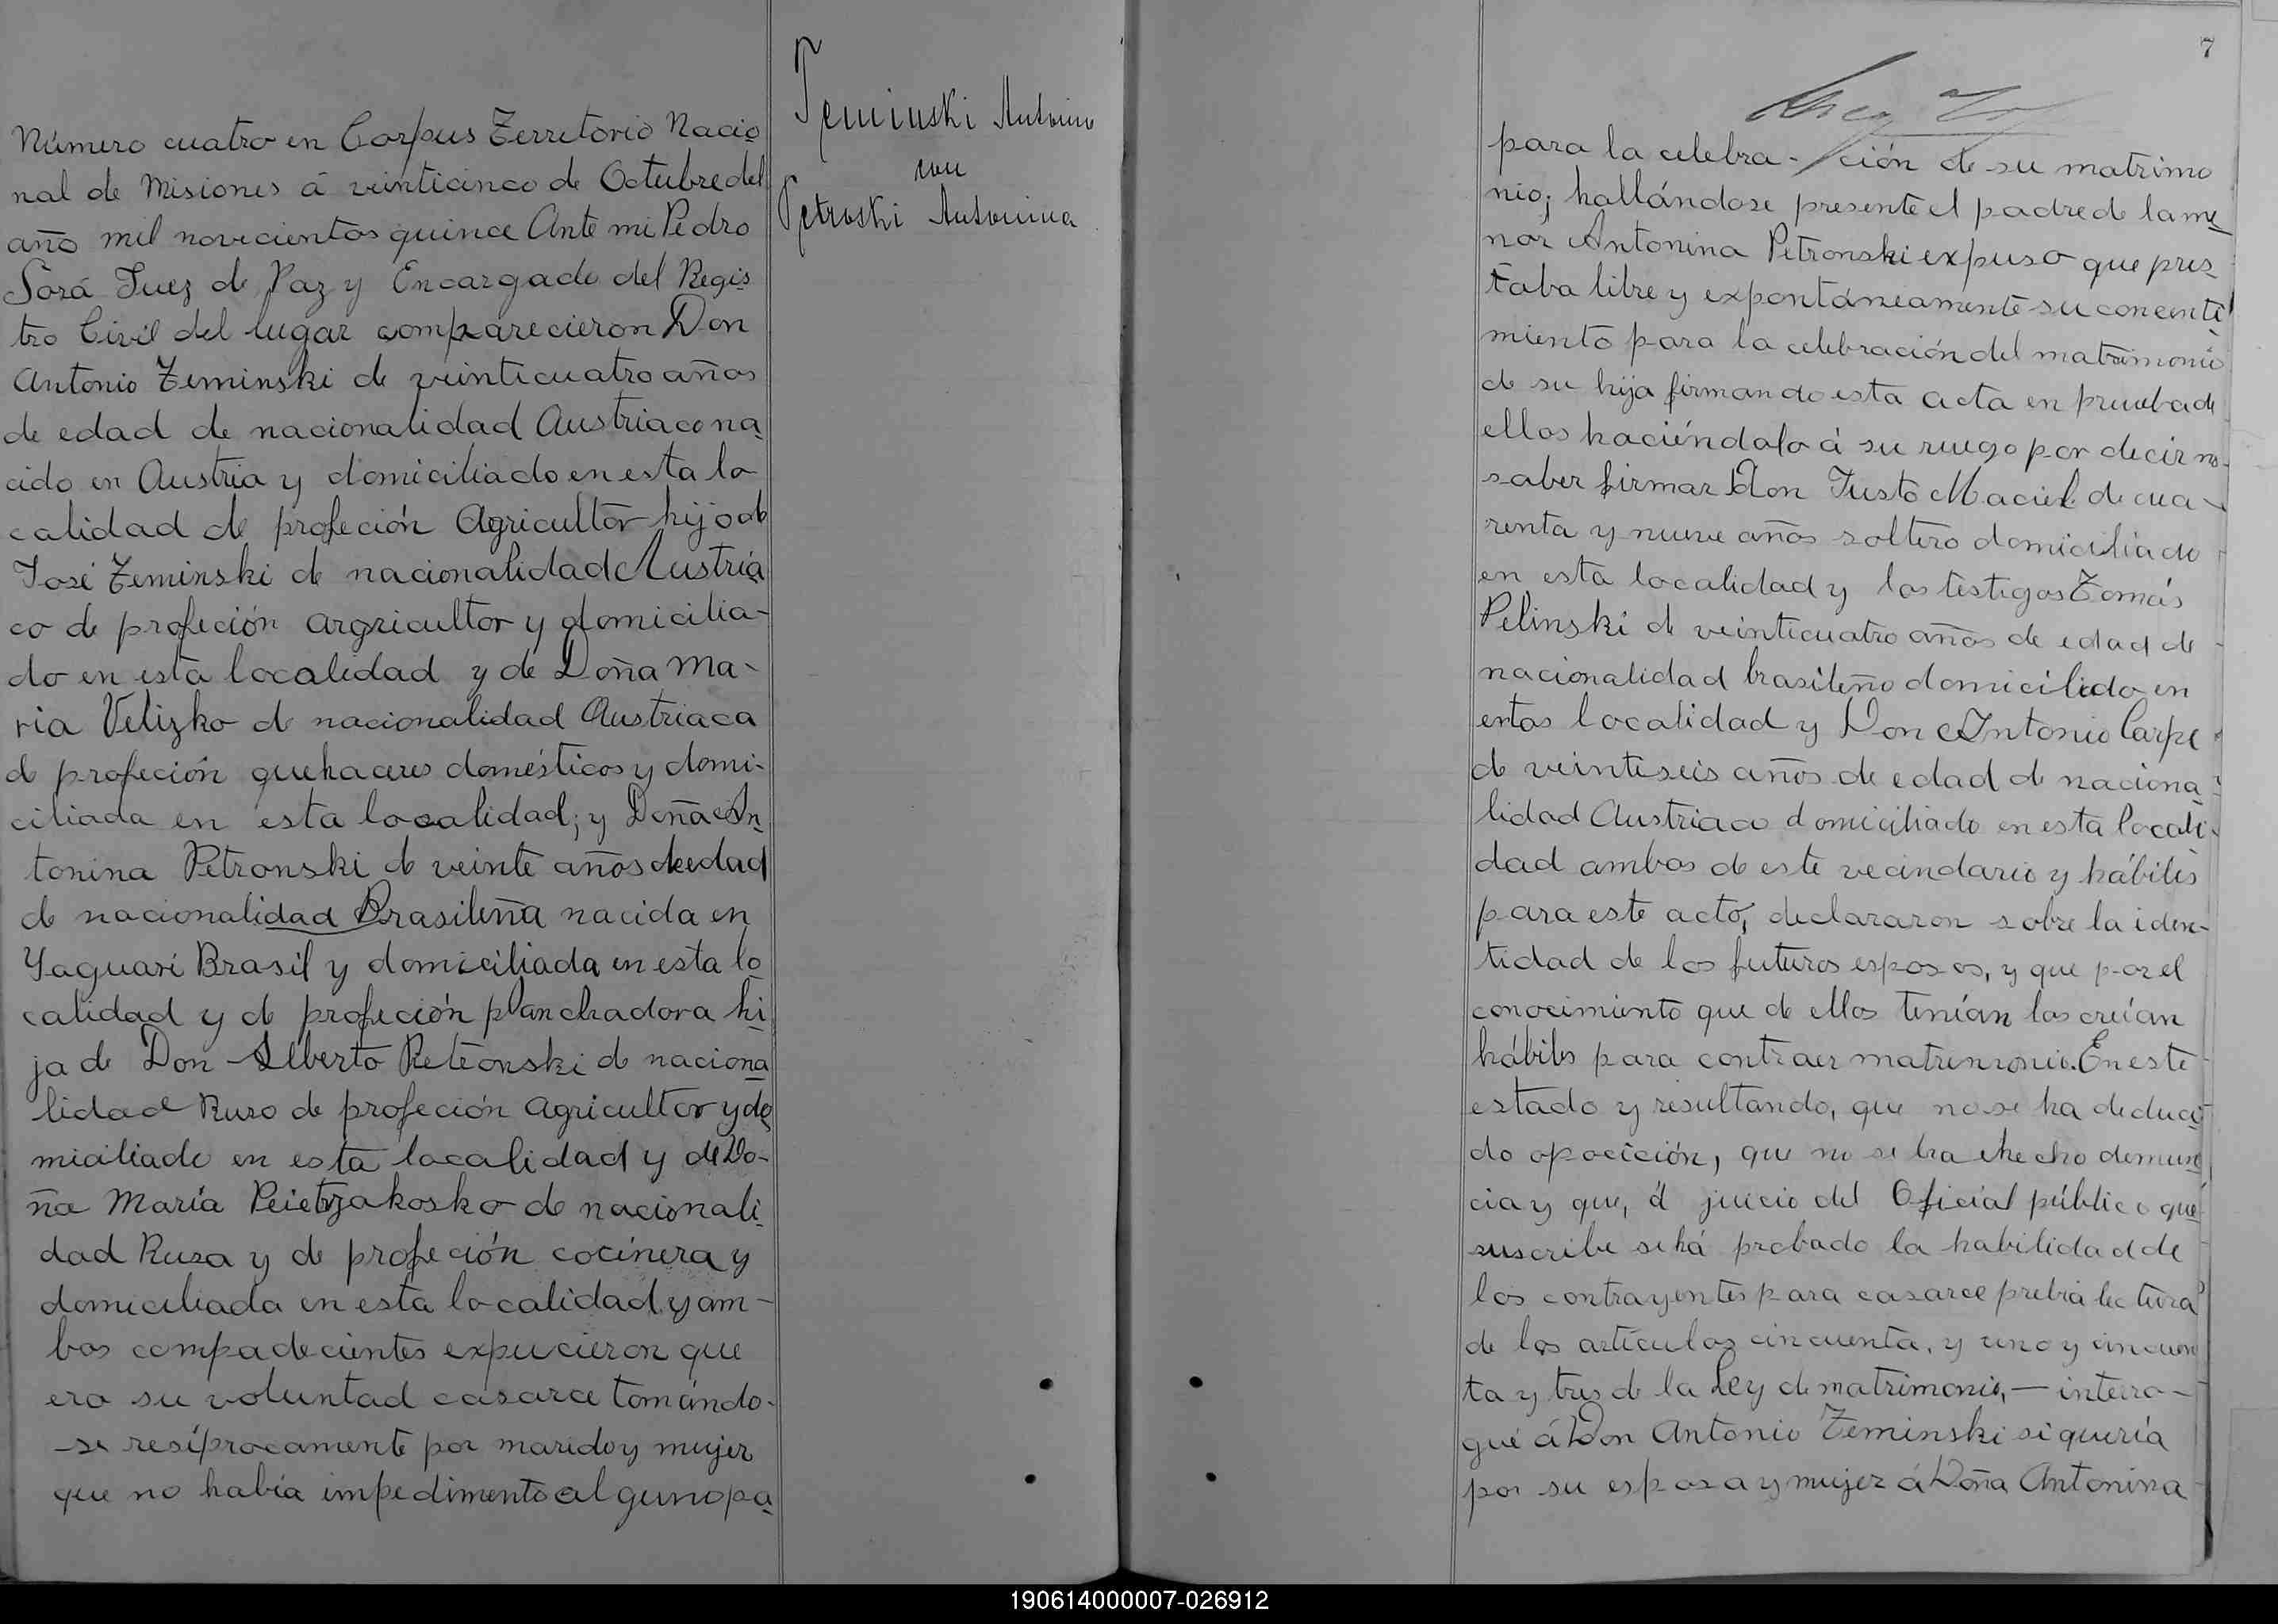 Número cuatro en Corpus Territorio Nacio
nal de Misiones á veinticinco de Octubre del
año mil novecientos quince Ante mi Pedro
Sorá Juez de Paz y Encargado del Regis
tro Civil del lugar comparecieron Don
Antonio Zeminski de veinticuatro años
de edad de nacionalidad Austriaco na
cido en Austria y domiciliado en esta lo
calidad de profeción Agricultor hijo de
José Zeminski de nacionalidad Austria
co de profeción argricultor y domicilia-
do en esta localidad y de Doña Ma-
ria Velizko de nacionalidad Austriaca
de profeción quehaceres domésticos y domi-
ciliada en esta localidad; y Doña An
tonina Petronski de veinte años de edad
de nacionalidad Brasileña nacida en
Yaguari Brasil y domiciliada en esta lo
calidad y de profeción planchadora hi
ja de Don Alberto Petronski de naciona
lidad Ruso de profeción agricultor y do
miciliado en esta localidad y de Do-
ña María Peietzakosko de nacionali
dad Rusa y de profeción cocinera y
domiciliada en esta localidad y am-
bos compadecientes expucieron que
era su voluntad casarce tomándo-
-se resíprocamente por marido y mujer
que no había impedimento alguno pa
Zeminski Antonio
con
Petroski Antonina
7
para la celebra- ción de su matrimo
nio; hallándose presente el padre de la me
nor Antonina Petronski expuso que pres
taba libre y expontáneamente su concenti
miento para la celebración del matrimonio
de su hija firmando esta acta en prueba de
ellos haciéndolo á su ruego por decir no
saber firmar Don Justo Maciel de cua-
renta y nueve años soltero domiciliado
en esta localidad y los testigos Tomás
Pelinski de veinticuatro años de edad de
nacionalidad brasileño domicilido en
entas localidad y Don Antonio Carpe
de veintiseis años de edad de naciona
lidad Austriaco domiciliado en esta locali-
dad ambos de este vecindario y hábiles
para este acto, declararon sobre la iden-
tidad de los futuros esposos, y que por el
conocimiento que de ellos tenían los creían
hábiles para contraer matrimonio. En este
estado y resultando, que no se ha deduci
do opocición, que no se ha hecho denun
cia y que, á juicio del Oficial público que
suscribe se há probado la habilidad de
los contrayentes para casarce prebia lectura
de los artículos cincuenta, y uno y cincuen
ta y tres de la Ley de matrimonio, — interro-
gué á Don Antonio Zeminski si quería
por su esposa y mujer á Doña Antonina
190614000007-026912